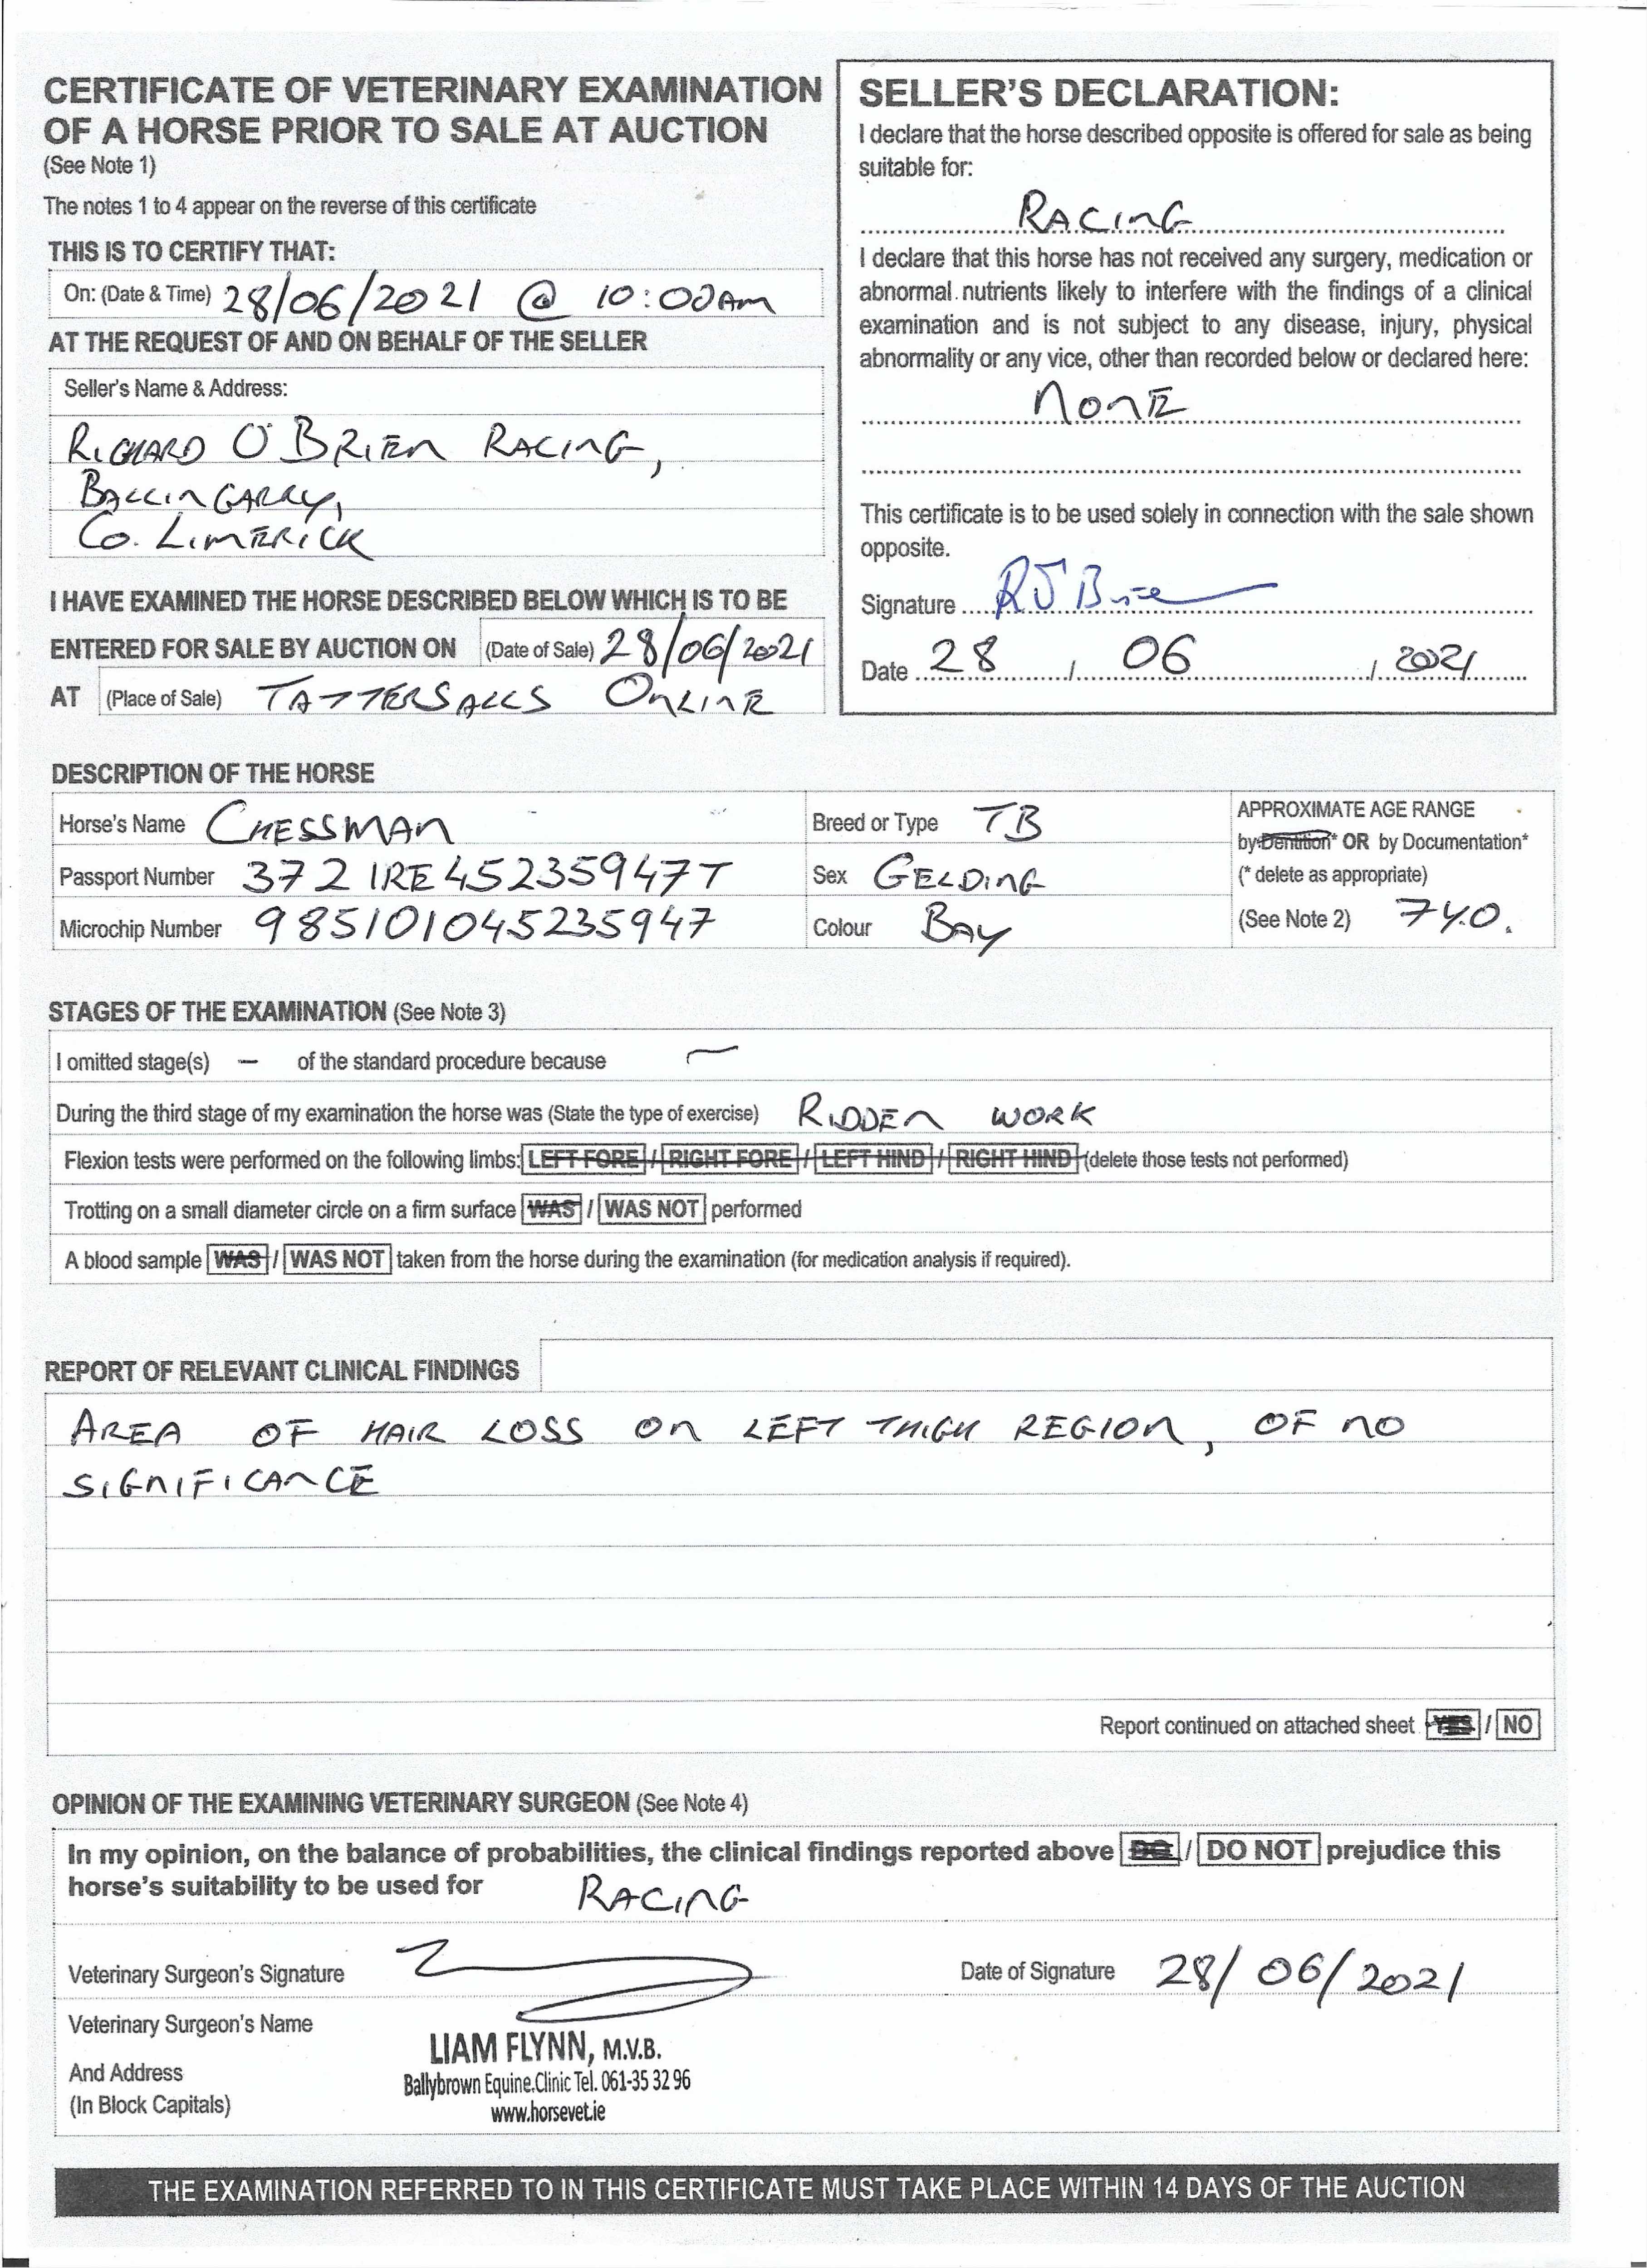 CERTIFICATE OF VETERINARY EXAMINATION
OF A HORSE PRIOR TO SALE AT AUCTION
(See Note 1)
The notes 1 to 4 appear on the reverse of this certificate
THIS IS TO CERTIFY THAT:
On: (Date & Time) 28/06/2021 @ 10:00AM
AT THE REQUEST OF AND ON BEHALF OF THE SELLER
Seller's Name & Address:
RICHARD O'BRIEN RACING,
BALLINGARRY,
CO. LIMERICK
I HAVE EXAMINED THE HORSE DESCRIBED BELOW WHICH IS TO BE
ENTERED FOR SALE BY AUCTION ON (Date of Sale) 28/06/2021
AT (Place of Sale) TATTERSALLS ONLINE
SELLER'S DECLARATION:
I declare that the horse described opposite is offered for sale as being
suitable for:
RACING
I declare that this horse has not received any surgery, medication or
abnormal nutrients likely to interfere with the findings of a clinical
examination and is not subject to any disease, injury, physical
abnormality or any vice, other than recorded below or declared here:
NONE
This certificate is to be used solely in connection with the sale shown
opposite.
Signature
Date 28 / 06 / 2021
DESCRIPTION OF THE HORSE
Horse's Name CHESSMAN Breed or Type TB APPROXIMATE AGE RANGE
by Dentition* OR by Documentation*
Passport Number 372 IRE 45235947T Sex GELDING (* delete as appropriate)
Microchip Number 985101045235947 Colour BAY (See Note 2) 7 Y.O.
STAGES OF THE EXAMINATION (See Note 3)
I omitted stage(s) – of the standard procedure because –
During the third stage of my examination the horse was (State the type of exercise) RIDDEN WORK
Flexion tests were performed on the following limbs: LEFT FORE / RIGHT FORE / LEFT HIND / RIGHT HIND (delete those tests not performed)
Trotting on a small diameter circle on a firm surface WAS / WAS NOT performed
A blood sample WAS / WAS NOT taken from the horse during the examination (for medication analysis if required).
REPORT OF RELEVANT CLINICAL FINDINGS
AREA OF HAIR LOSS ON LEFT THIGH REGION, OF NO
SIGNIFICANCE
Report continued on attached sheet YES / NO
OPINION OF THE EXAMINING VETERINARY SURGEON (See Note 4)
In my opinion, on the balance of probabilities, the clinical findings reported above DO / DO NOT prejudice this
horse's suitability to be used for RACING
Veterinary Surgeon's Signature Date of Signature 28/06/2021
Veterinary Surgeon's Name
LIAM FLYNN, M.V.B.
And Address Ballybrown Equine Clinic Tel. 061-35 32 96
(In Block Capitals) www.horsevet.ie
THE EXAMINATION REFERRED TO IN THIS CERTIFICATE MUST TAKE PLACE WITHIN 14 DAYS OF THE AUCTION